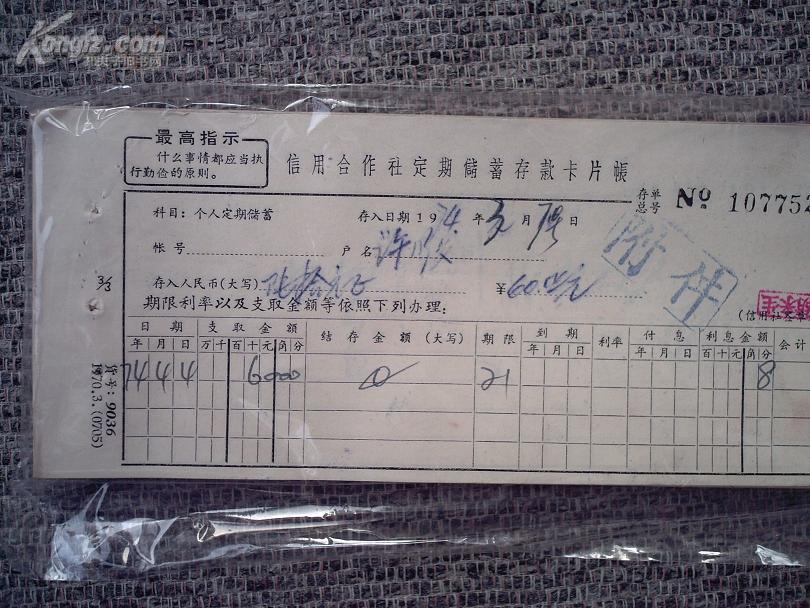 Kongfz.com
孔夫子旧书网
最高指示
什么事情都应当执
行勤俭的原则。
信用合作社定期储蓄存款卡片帳
存单
总号 № 107752
科目:个人定期储蓄 存入日期 1974年 月 日
帐号 户名 许
附件
存入人民币(大写) 陆拾元正 ¥60.00元
期限利率以及支取金额等依照下列办理:
日期 支取金额 结存金额(大写) 期限 到期 利率 付息 利息金额 会计
年 月 日 万 千 百 十 元 角 分 年 月 日 年 月 日 百 十 元 角 分
74 4 4 6000 0 21 8
货号:9036
1970.3.(0705)